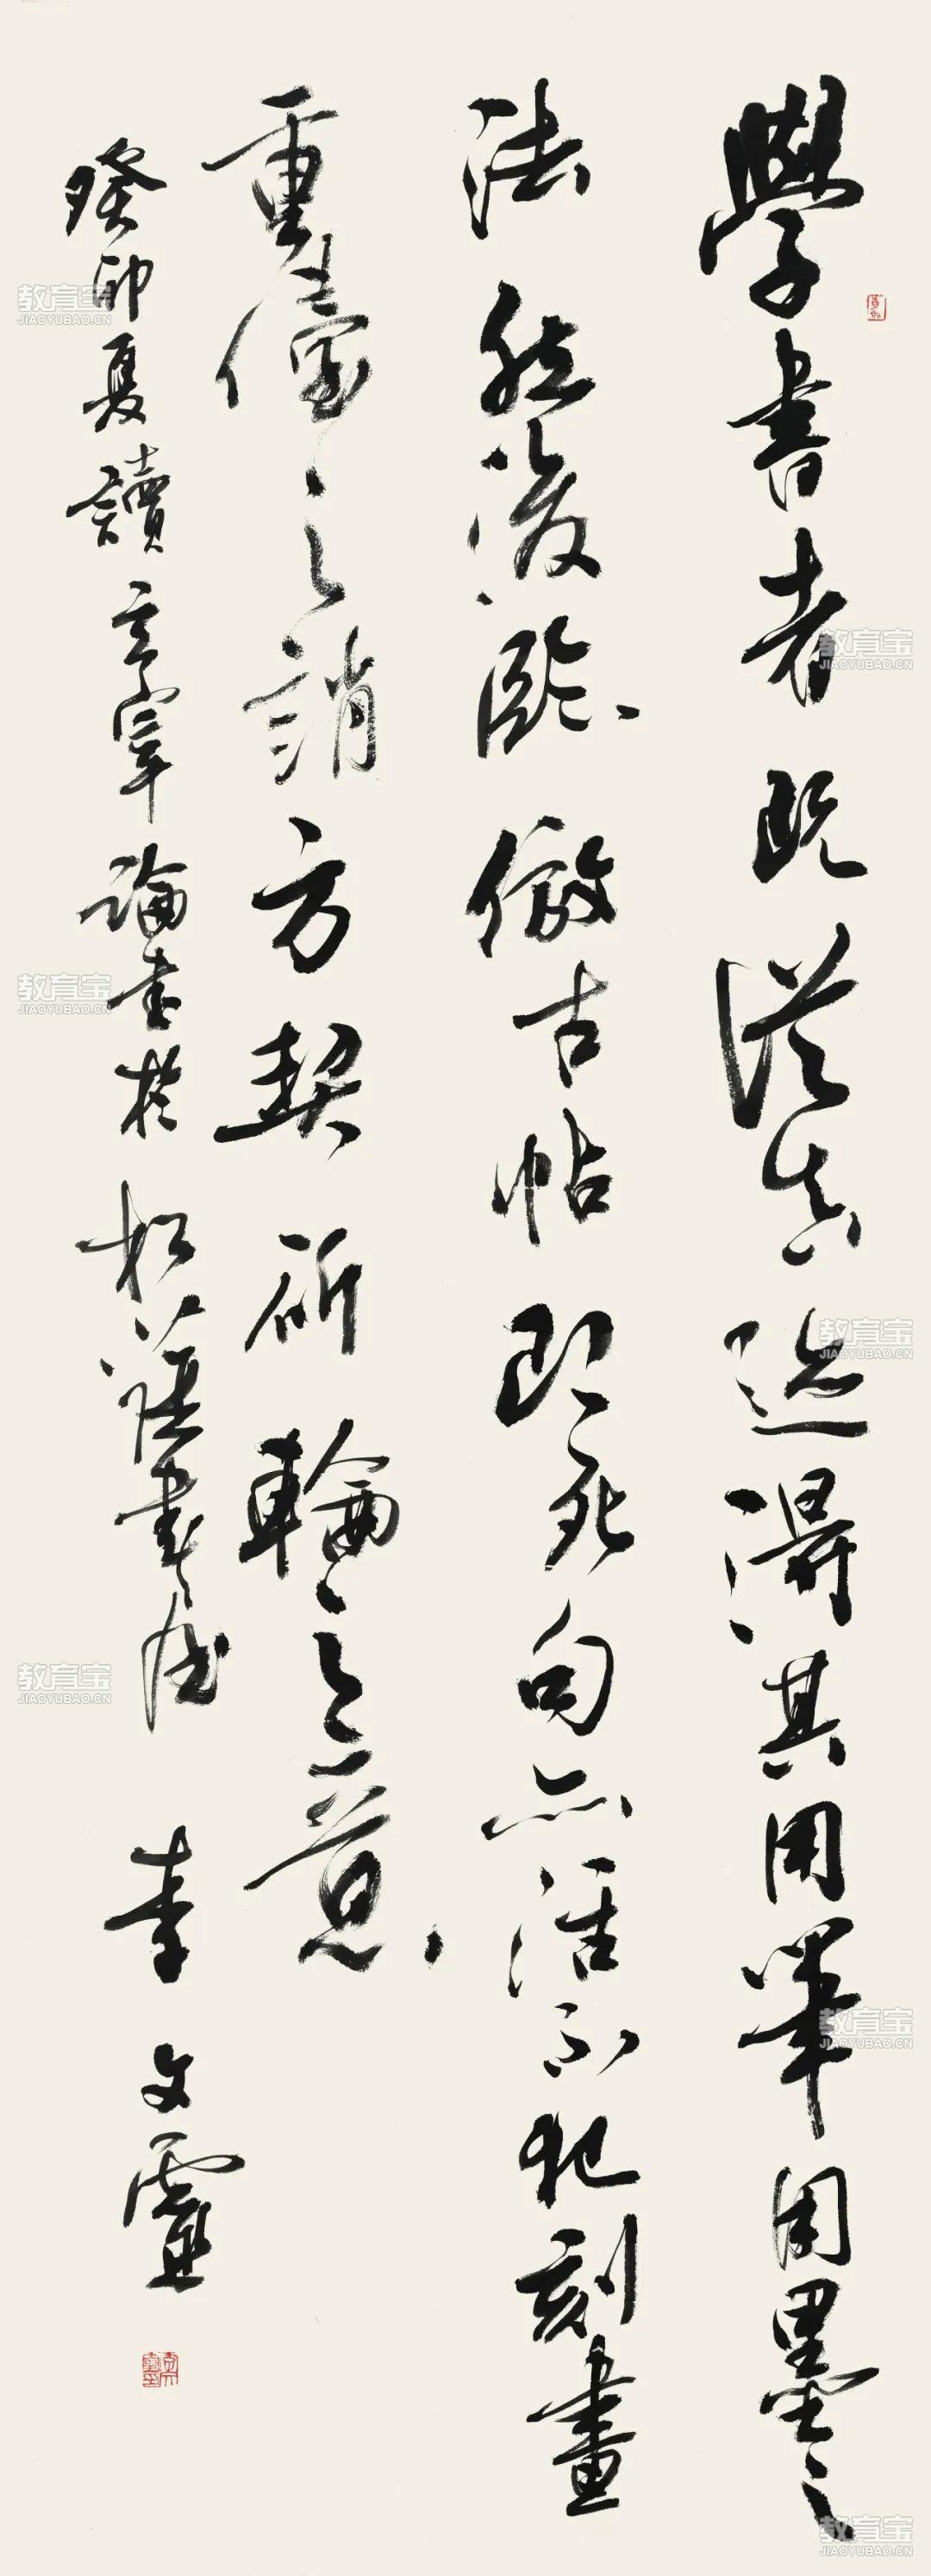 學書者既從真迹得其用筆用墨之
法然後臨倣古帖即死句亦活不犯刻畫
重儓之誚方契斫輪之意
癸卯夏讀玄宰論書於松蔭書屋 李文靈
教育宝
JIAOYUBAO.CN
教育宝
JIAOYUBAO.CN
教育宝
JIAOYUBAO.CN
教育宝
JIAOYUBAO.CN
教育宝
JIAOYUBAO.CN
教育宝
JIAOYUBAO.CN
教育宝
JIAOYUBAO.CN